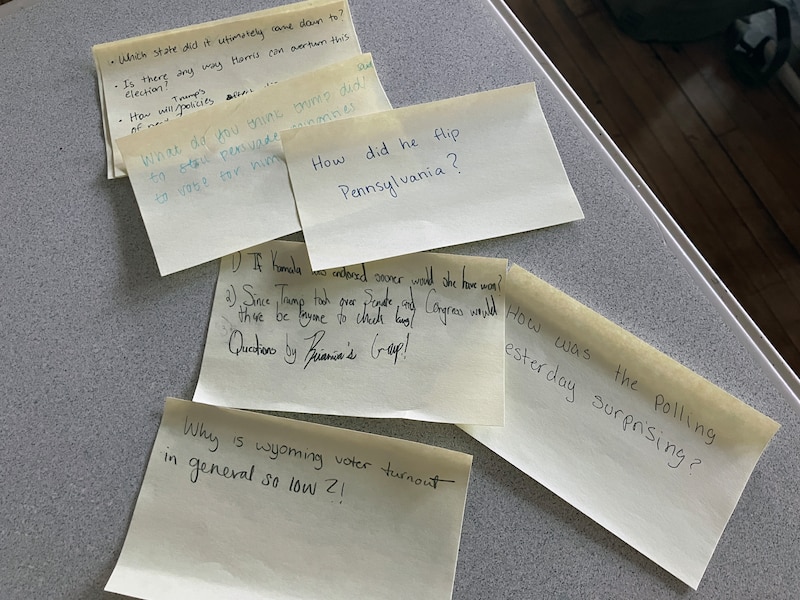 • Which state did it utimately came down to?
• Is there any way Harris can overturn this
election?
Trump's
• How will policies
of
What do you think trump did/
to persuade minorities
to vote for him
How did he flip
Pennsylvania?
1) If Kamala was endorsed sooner would she have won?
2) Since Trump took over Senate and Congress would
there be anyone to check laws/
Questions by Group!
How was the polling
yesterday surprising?
Why is wyoming voter turnout
in general so low?!